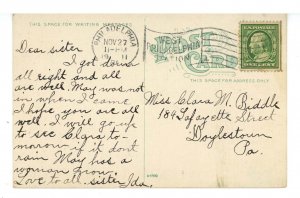 THIS SPACE FOR WRITING MESSAGES
Dear sister
I got down
all right and all
are well. May was not
in when I came
I hope you are all
well. I will go up
to see Clara to-
morrow if it dont
rain May has a
woman now.
Love to all. sister Ida.
PHILADELPHIA
NOV 27
11-PM
WEST
PHILADELPHIA
STATION
POST
CARD
THIS SPACE FOR ADDRESS ONLY
Miss Clara M. Biddle
184 Lafayette Street
Doylestown
Pa.